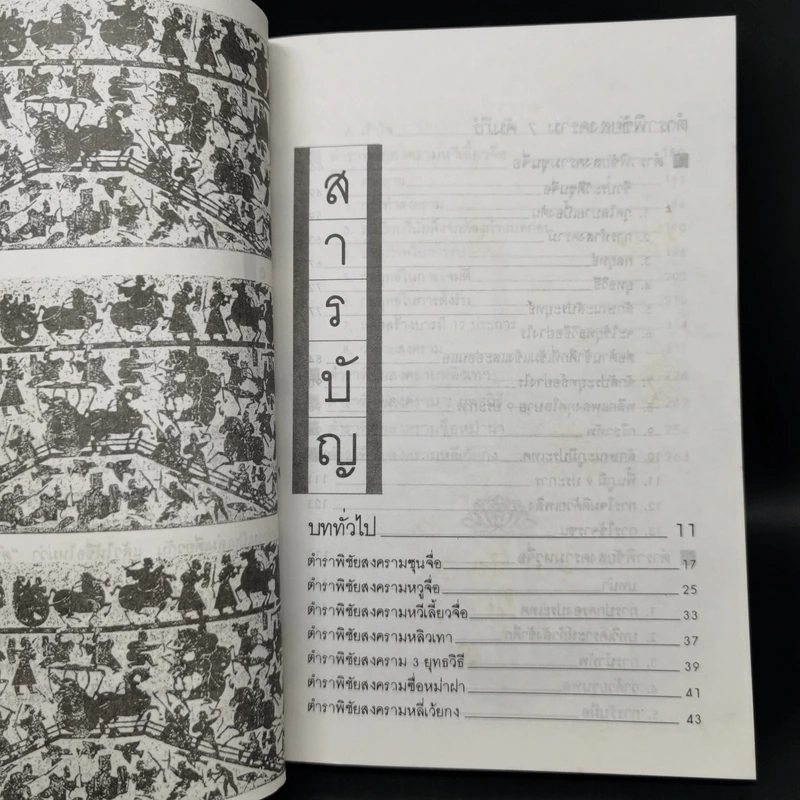 สารบัญ
บททั่วไป 11
ตำราพิชัยสงครามซุนจื่อ 17
ตำราพิชัยสงครามหวูจื่อ 25
ตำราพิชัยสงครามหวีเลี้ยวจื่อ 33
ตำราพิชัยสงครามหลิวเทา 37
ตำราพิชัยสงคราม 3 ยุทธวิธี 39
ตำราพิชัยสงครามซือหม่าฝา 41
ตำราพิชัยสงครามหลี่เว้ยกง 43